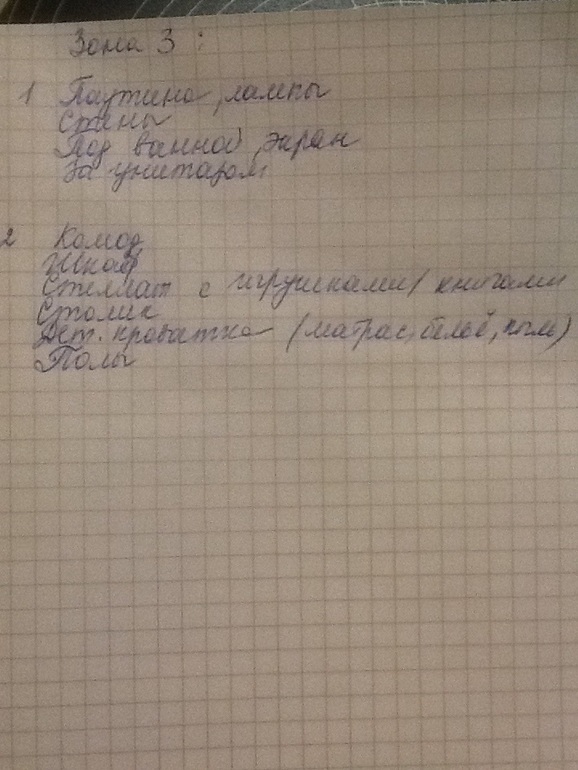 Зона 3 :
1 Паутина, лампы
Стены
Под ванной, экран
За унитазом
2 Комод
Шкаф
Стеллат с игрушками/ книгами
Столик
Дет. кроватка (матрас, бельё, пыль)
Полы